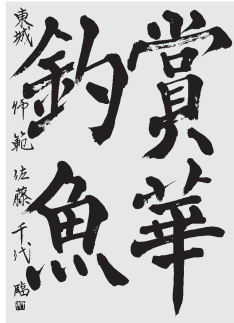 賞華
釣魚
東城 師範 佐藤千代 臨